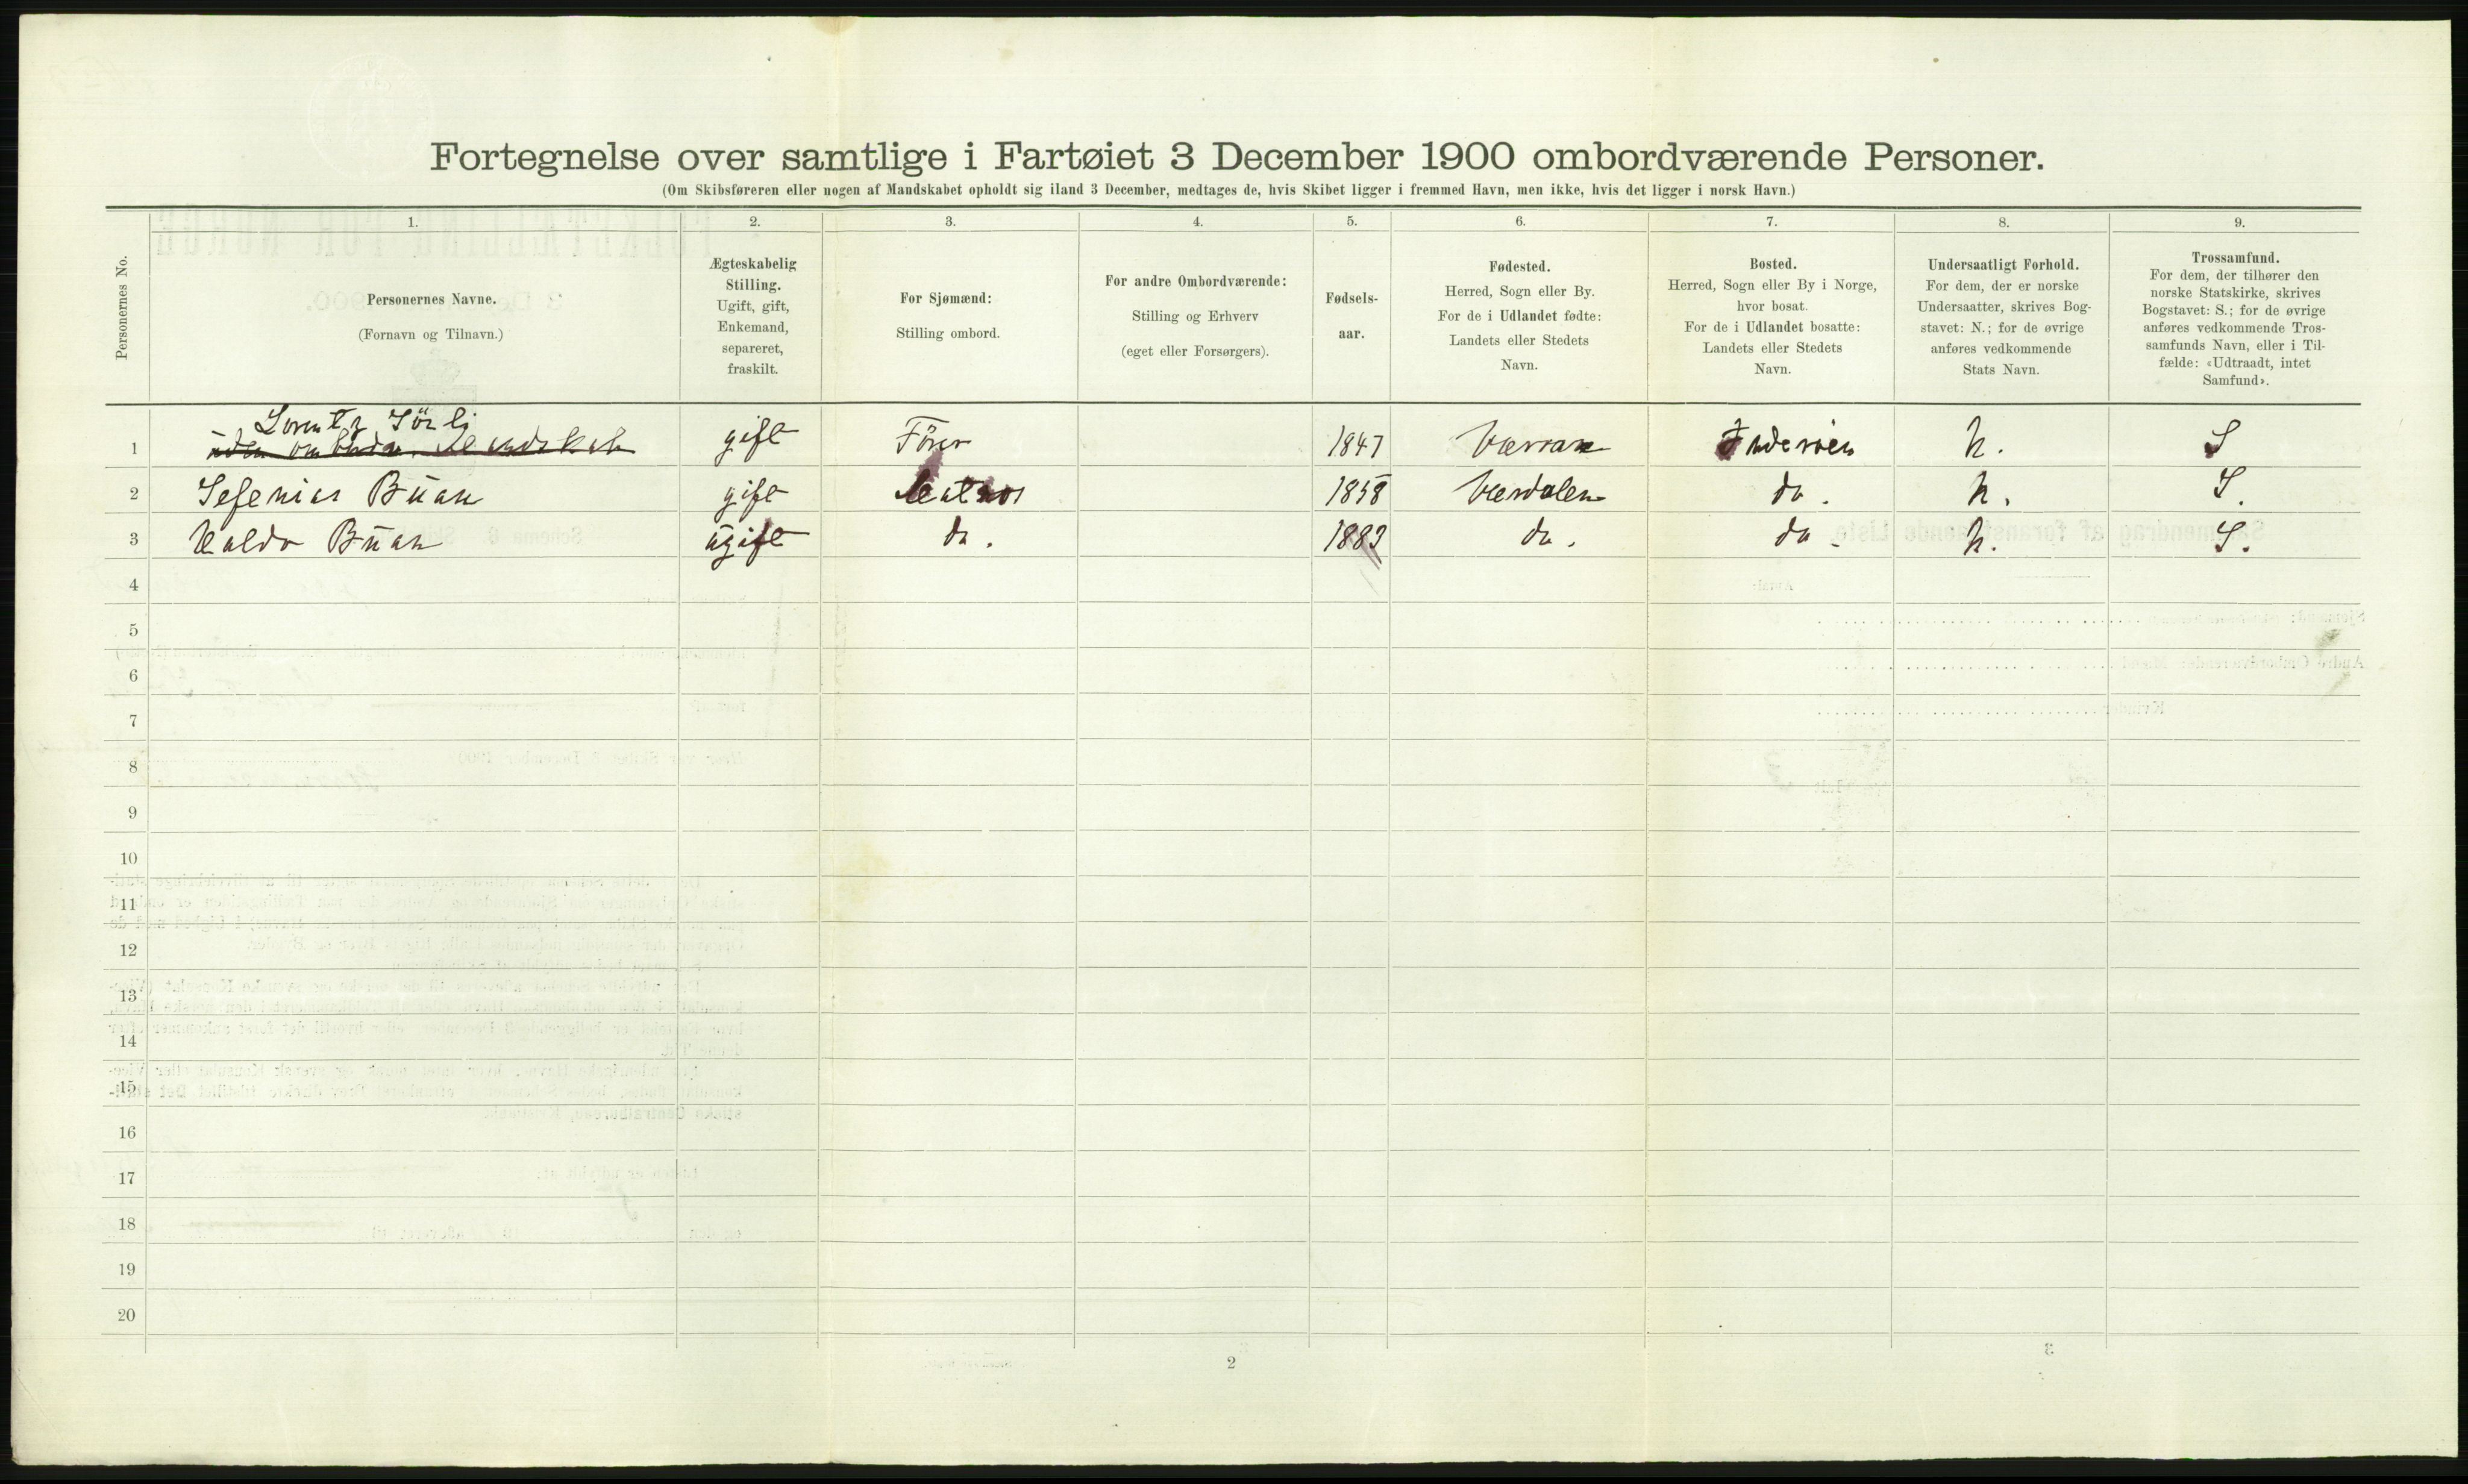 Fortegnelse over samtlige i Fartøiet 3 December 1900 ombordværende Personer.
(Om Skibsføreren eller nogen af Mandskabet opholdt sig iland 3 December, medtages de, hvis Skibet ligger i fremmed Havn, men ikke, hvis det ligger i norsk Havn.)
Personernes No.
1.
Personernes Navne.
(Fornavn og Tilnavn.)
2.
Ægteskabelig
Stilling.
Ugift, gift,
Enkemand,
separeret,
fraskilt.
3.
For Sjømænd:
Stilling ombord.
4.
For andre Ombordværende:
Stilling og Erhverv
(eget eller Forsørgers).
5.
Fødsels-
aar.
6.
Fødested.
Herred, Sogn eller By.
For de i Udlandet fødte:
Landets eller Stedets
Navn.
7.
Bosted.
Herred, Sogn eller By i Norge,
hvor bosat.
For de i Udlandet bosatte:
Landets eller Stedets
Navn.
8.
Undersaatligt Forhold.
For dem, der er norske
Undersaatter, skrives Bog-
stavet: N.; for de øvrige
anføres vedkommende
Stats Navn.
9.
Trossamfund.
For dem, der tilhører den
norske Statskirke, skrives
Bogstavet: S.; for de øvrige
anføres vedkommende Tros-
samfunds Navn, eller i Til-
fælde: «Udtraadt, intet
Samfund».
1 Lorentz Sörli gift Förer 1847 Værran Inderöen N. S
2 Sefenias Buan gift Matros 1858 Værdalen do. N. S.
3 Buan ugift do. 1882 do. do. N. S.
4
5
6
7
8
9
10
11
12
13
14
15
16
17
18
19
20
2